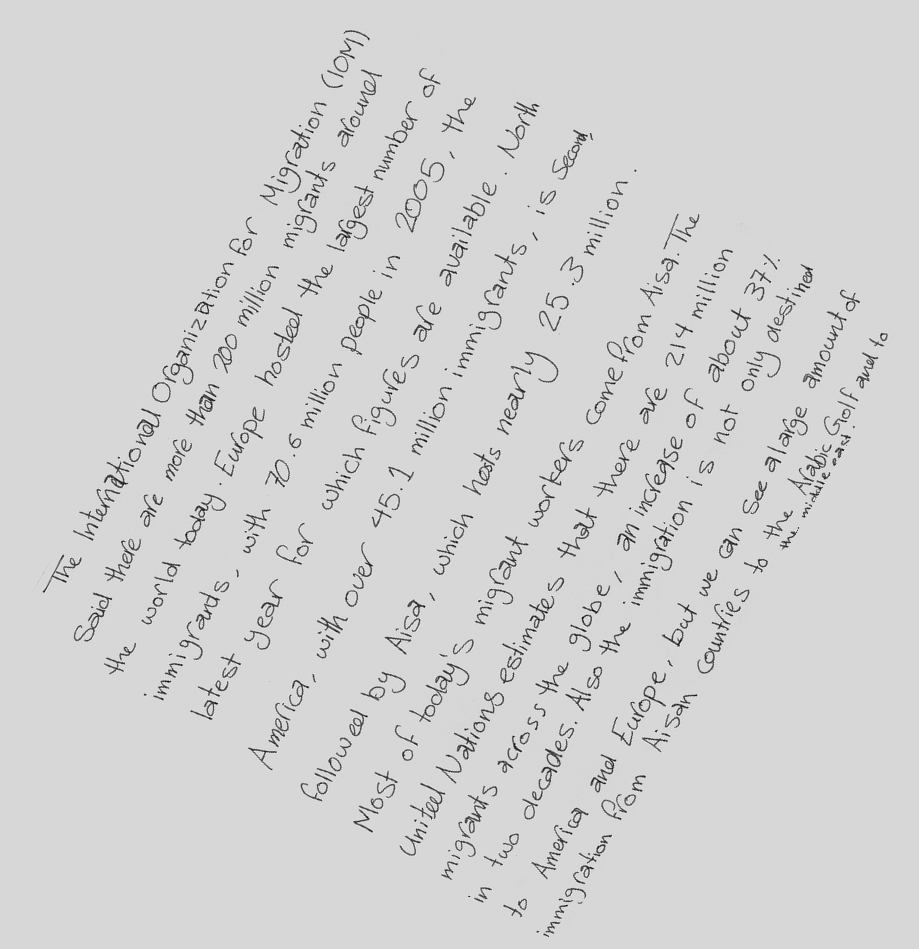 The International Organization for Migration (IOM)
Said there are more than 200 million migrants around
the world today. Europe hosted the largest number of
immigrants, with 70.6 million people in 2005, the
latest year for which figures are available. North
America, with over 45.1 million immigrants, is second,
followed by Aisa, which hosts nearly 25.3 million.
Most of today's migrant workers come from Aisa. The
United Nations estimates that there are 214 million
migrants across the globe, an increase of about 37%
in two decades. Also the immigration is not only destined
to America and Europe, but we can see a large amount of
immigration from Aisan countries to the Arabic Golf and to
the middle east.